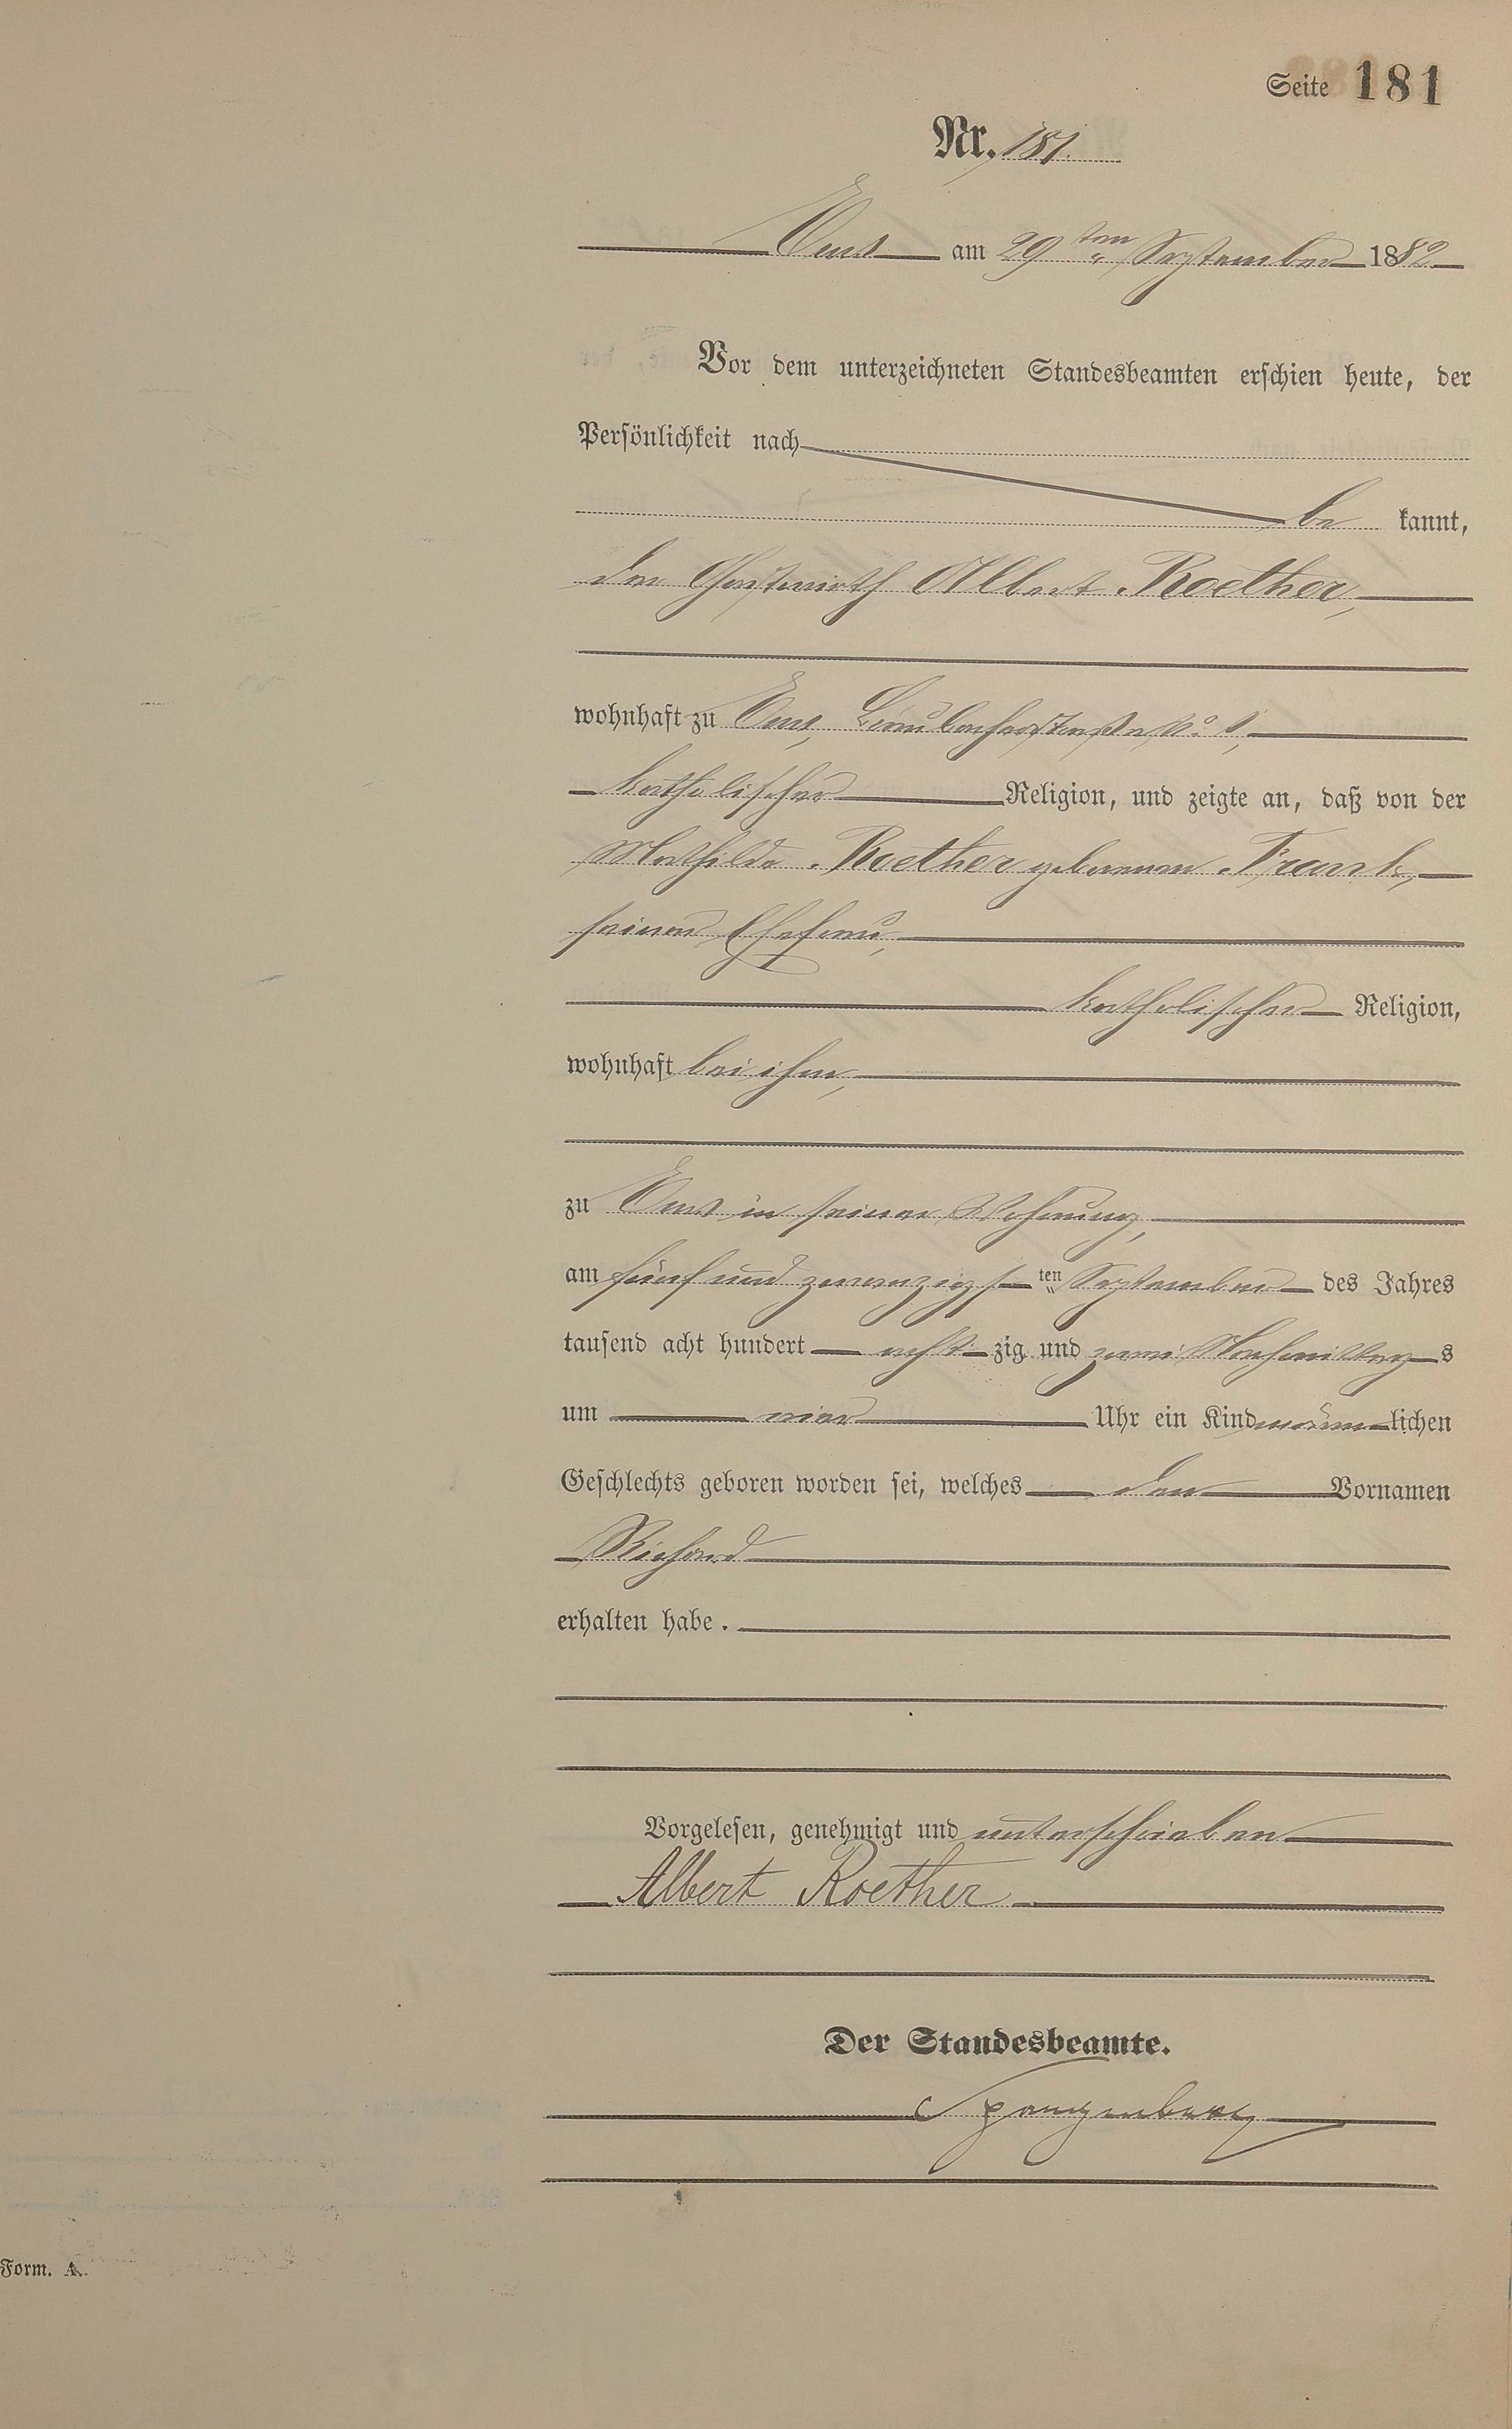 Seite 181
Nr. 181.
Ems am 29ten September 1882
Vor dem unterzeichneten Standesbeamten erschien heute, der
Persönlichkeit nach
be kannt,
der Gastwirth Albert Roether,
wohnhaft zu Ems, No. 1,
katholischer Religion, und zeigte an, daß von der
Mathilde Roether geborenen Frank,
seiner Ehefrau,
katholischer Religion,
wohnhaft bei ihm,
zu Ems in seiner Wohnung,
am fünf und zwanzigsten September des Jahres
tausend acht hundert acht zig und zwei Nachmittags
um vier Uhr ein Kind männlichen
Geschlechts geboren worden sei, welches den Vornamen
Richard
erhalten habe.
Vorgelesen, genehmigt und unterschrieben
Albert Roether
Der Standesbeamte.
Spangenberg
Form. A.